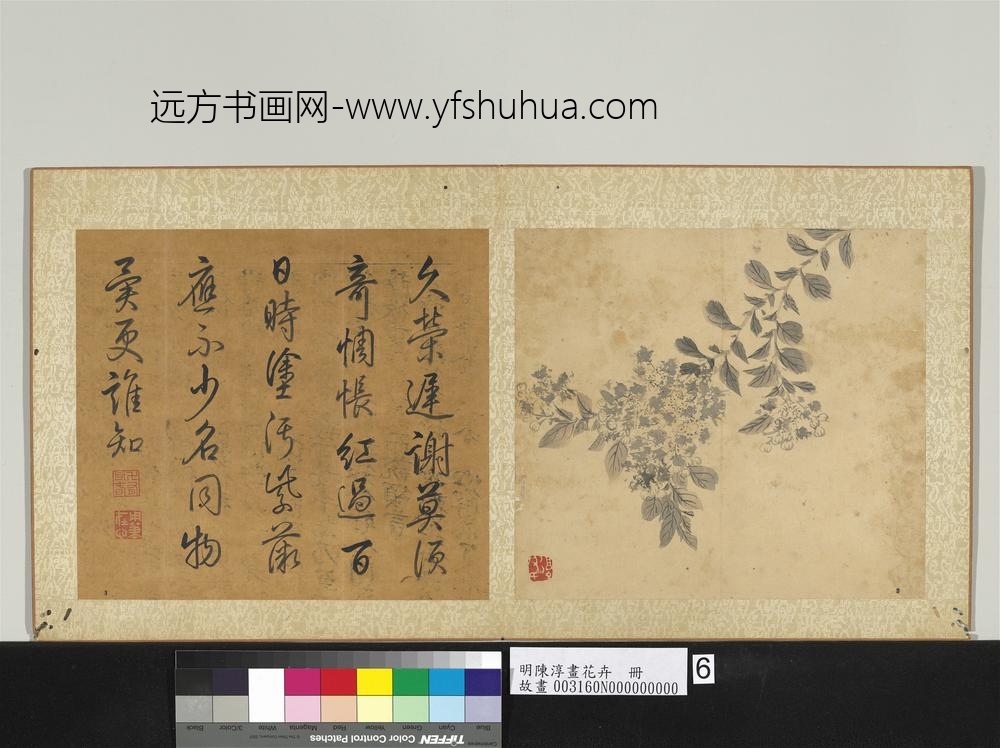 远方书画网-www.yfshuhua.com
久榮遲謝莫須
奇惆悵紅過百
日時塗污紫薇
應不少名同物
異更誰知
明陳淳畫花卉　冊
故畫 003160N000000000
6
Black
3/Color
White
Magenta
Red
Yellow
Green
Cyan
Blue
TIFFEN Color Control Patches